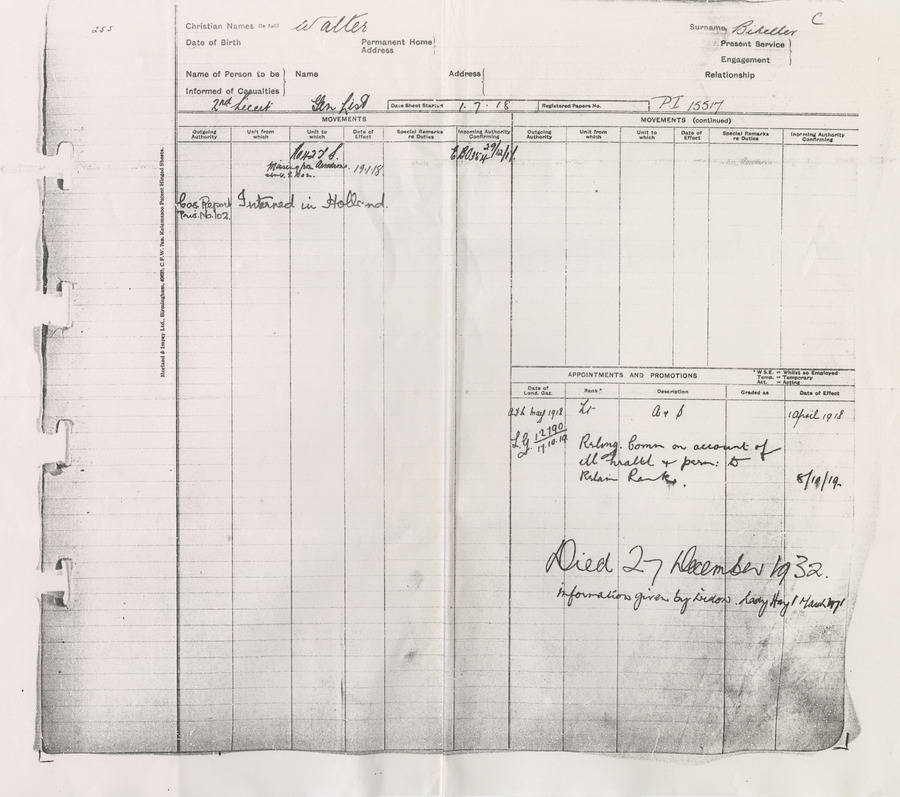 255
C
Christian Names (in full) Walter
Surname
Date of Birth
Permanent Home Address
Present Service Engagement
Name of Person to be Informed of Casualties
Name
Address
Relationship
2nd Lieut Gen List
Date Sheet Started 1.7.18
Registered Papers No. PI 15517
MOVEMENTS
MOVEMENTS (continued)
Outgoing Authority
Unit from which
Unit to which
Date of Effect
Special Remarks re Duties
Incoming Authority Confirming
Outgoing Authority
Unit from which
Unit to which
Date of Effect
Special Remarks re Duties
Incoming Authority Confirming
No 42 T S.
Missing 19.1.18.
Cas Report Interned in Holland.
No. 102.
Horland & Impey Ltd., Birmingham,
Kalamazoo Patent Hinged Sheets.
APPOINTMENTS AND PROMOTIONS
* W.S.E. = Whilst so Employed
Temp. = Temporary
Act. = Acting
Date of Lond. Gaz.
Rank *
Description
Graded as
Date of Effect
May 1918 Lt A & S 1 April 1918
L.G. 12790
17.10.19
Relinq. Comm on account of
ill health & perm: to
Retain Rank.
8/10/19.
Died 27 December 1932.
information given by widow. Lady March